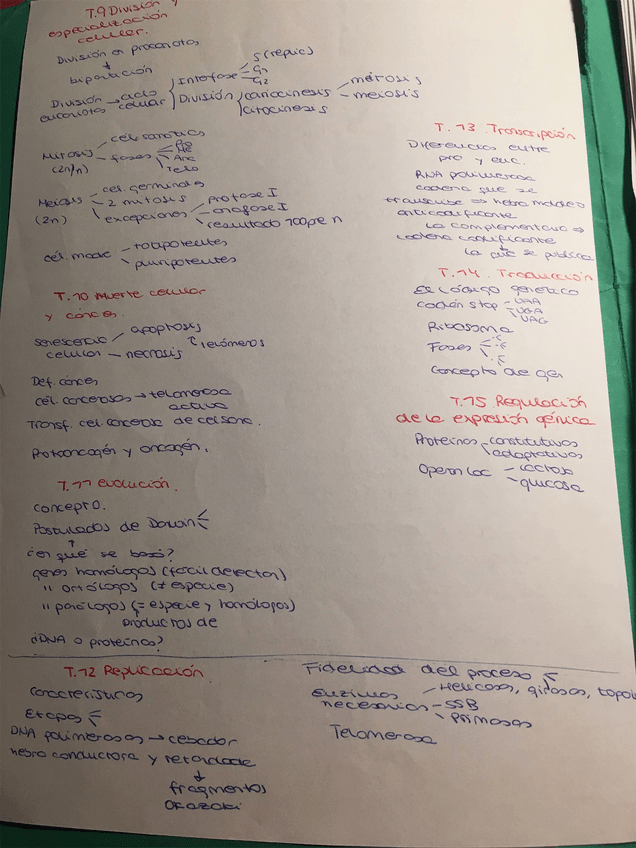 T.9 División y
especialización
celular.
División en procariotas
bipartición
División eucariotas → ciclo celular
Interfase
S (replic)
G1
G2
División
cariocinesis
mitosis
meiosis
citocinesis
Mitosis
(2n/n)
cél. somáticas
fases
Pro
Me
Ana
Telo
Meiosis
(2n)
cel. germinales
2 mitosis
excepciones
profase I
anafase I
resultado
cél. madre
totipotentes
pluripotentes
T.10 Muerte celular
y cáncer.
senescencia
celular
apoptosis
necrosis
telómeros
Def. cáncer
cél. cancerosas → telomerasa
activa
Transf. cel. cancerosa de cél sana.
Protooncogén y oncogén.
T.11 evolución.
concepto.
Postulados de Darwin
¿en qué se basó?
genes homólogos (fácil detectar)
" ortólogos (≠ especie)
" parálogos (= especie y homólogos)
productos de
¿DNA o proteínas?
T.12 Replicación
Características
Etapas
DNA polimerasas → cebador
hebra conductora y retardada
fragmentos
Okazaki
Fidelidad del proceso
Enzimas
necesarias
Helicasas, girasas, topoi
SSB
Primasas
Telomerasa
T.13 Transcripción
Diferencias entre
pro y euc.
RNA polimerasa
cadena que se
transcribe ⇒ hebra molde o
anticodificante
la complementaria ⇒
cadena codificante
la que se publica
T.14 Traducción
El código genético
Codón stop
UAA
UGA
UAG
Ribosoma
Fases
Concepto de gen
T.15 Regulación
de la expresión génica
Proteínas
constitutivas
adaptativas
Operon Lac
lactosa
glucosa